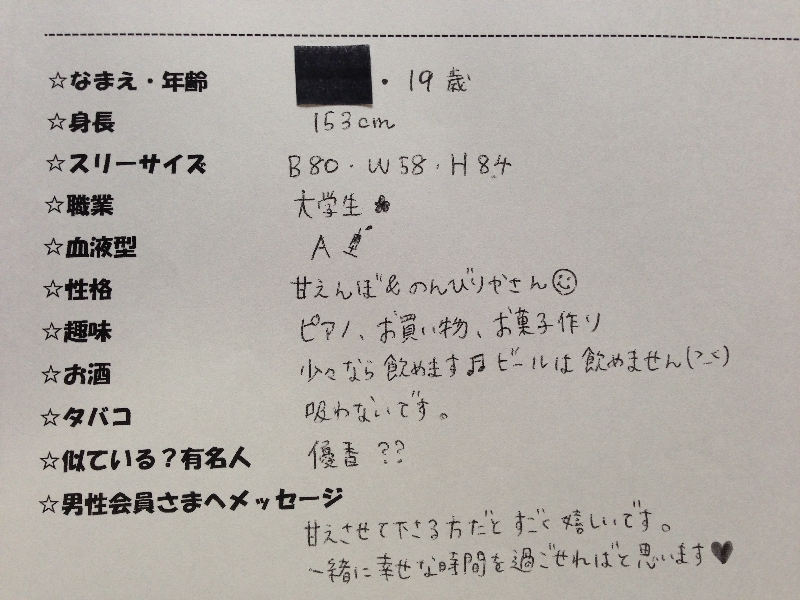 ☆なまえ・年齢 ・19歳
☆身長 153cm
☆スリーサイズ B80・W58・H84
☆職業 大学生
☆血液型 A
☆性格 甘えんぼ&のんびりかさん
☆趣味 ピアノ、お買い物、お菓子作り
☆お酒 少々なら飲めます♫ビールは飲めません(>_<)
☆タバコ 吸わないです。
☆似ている?有名人 優香 ??
☆男性会員さまへメッセージ
甘えさせて下さる方だとすごく嬉しいです。
一緒に幸せな時間を過ごせればと思います♥